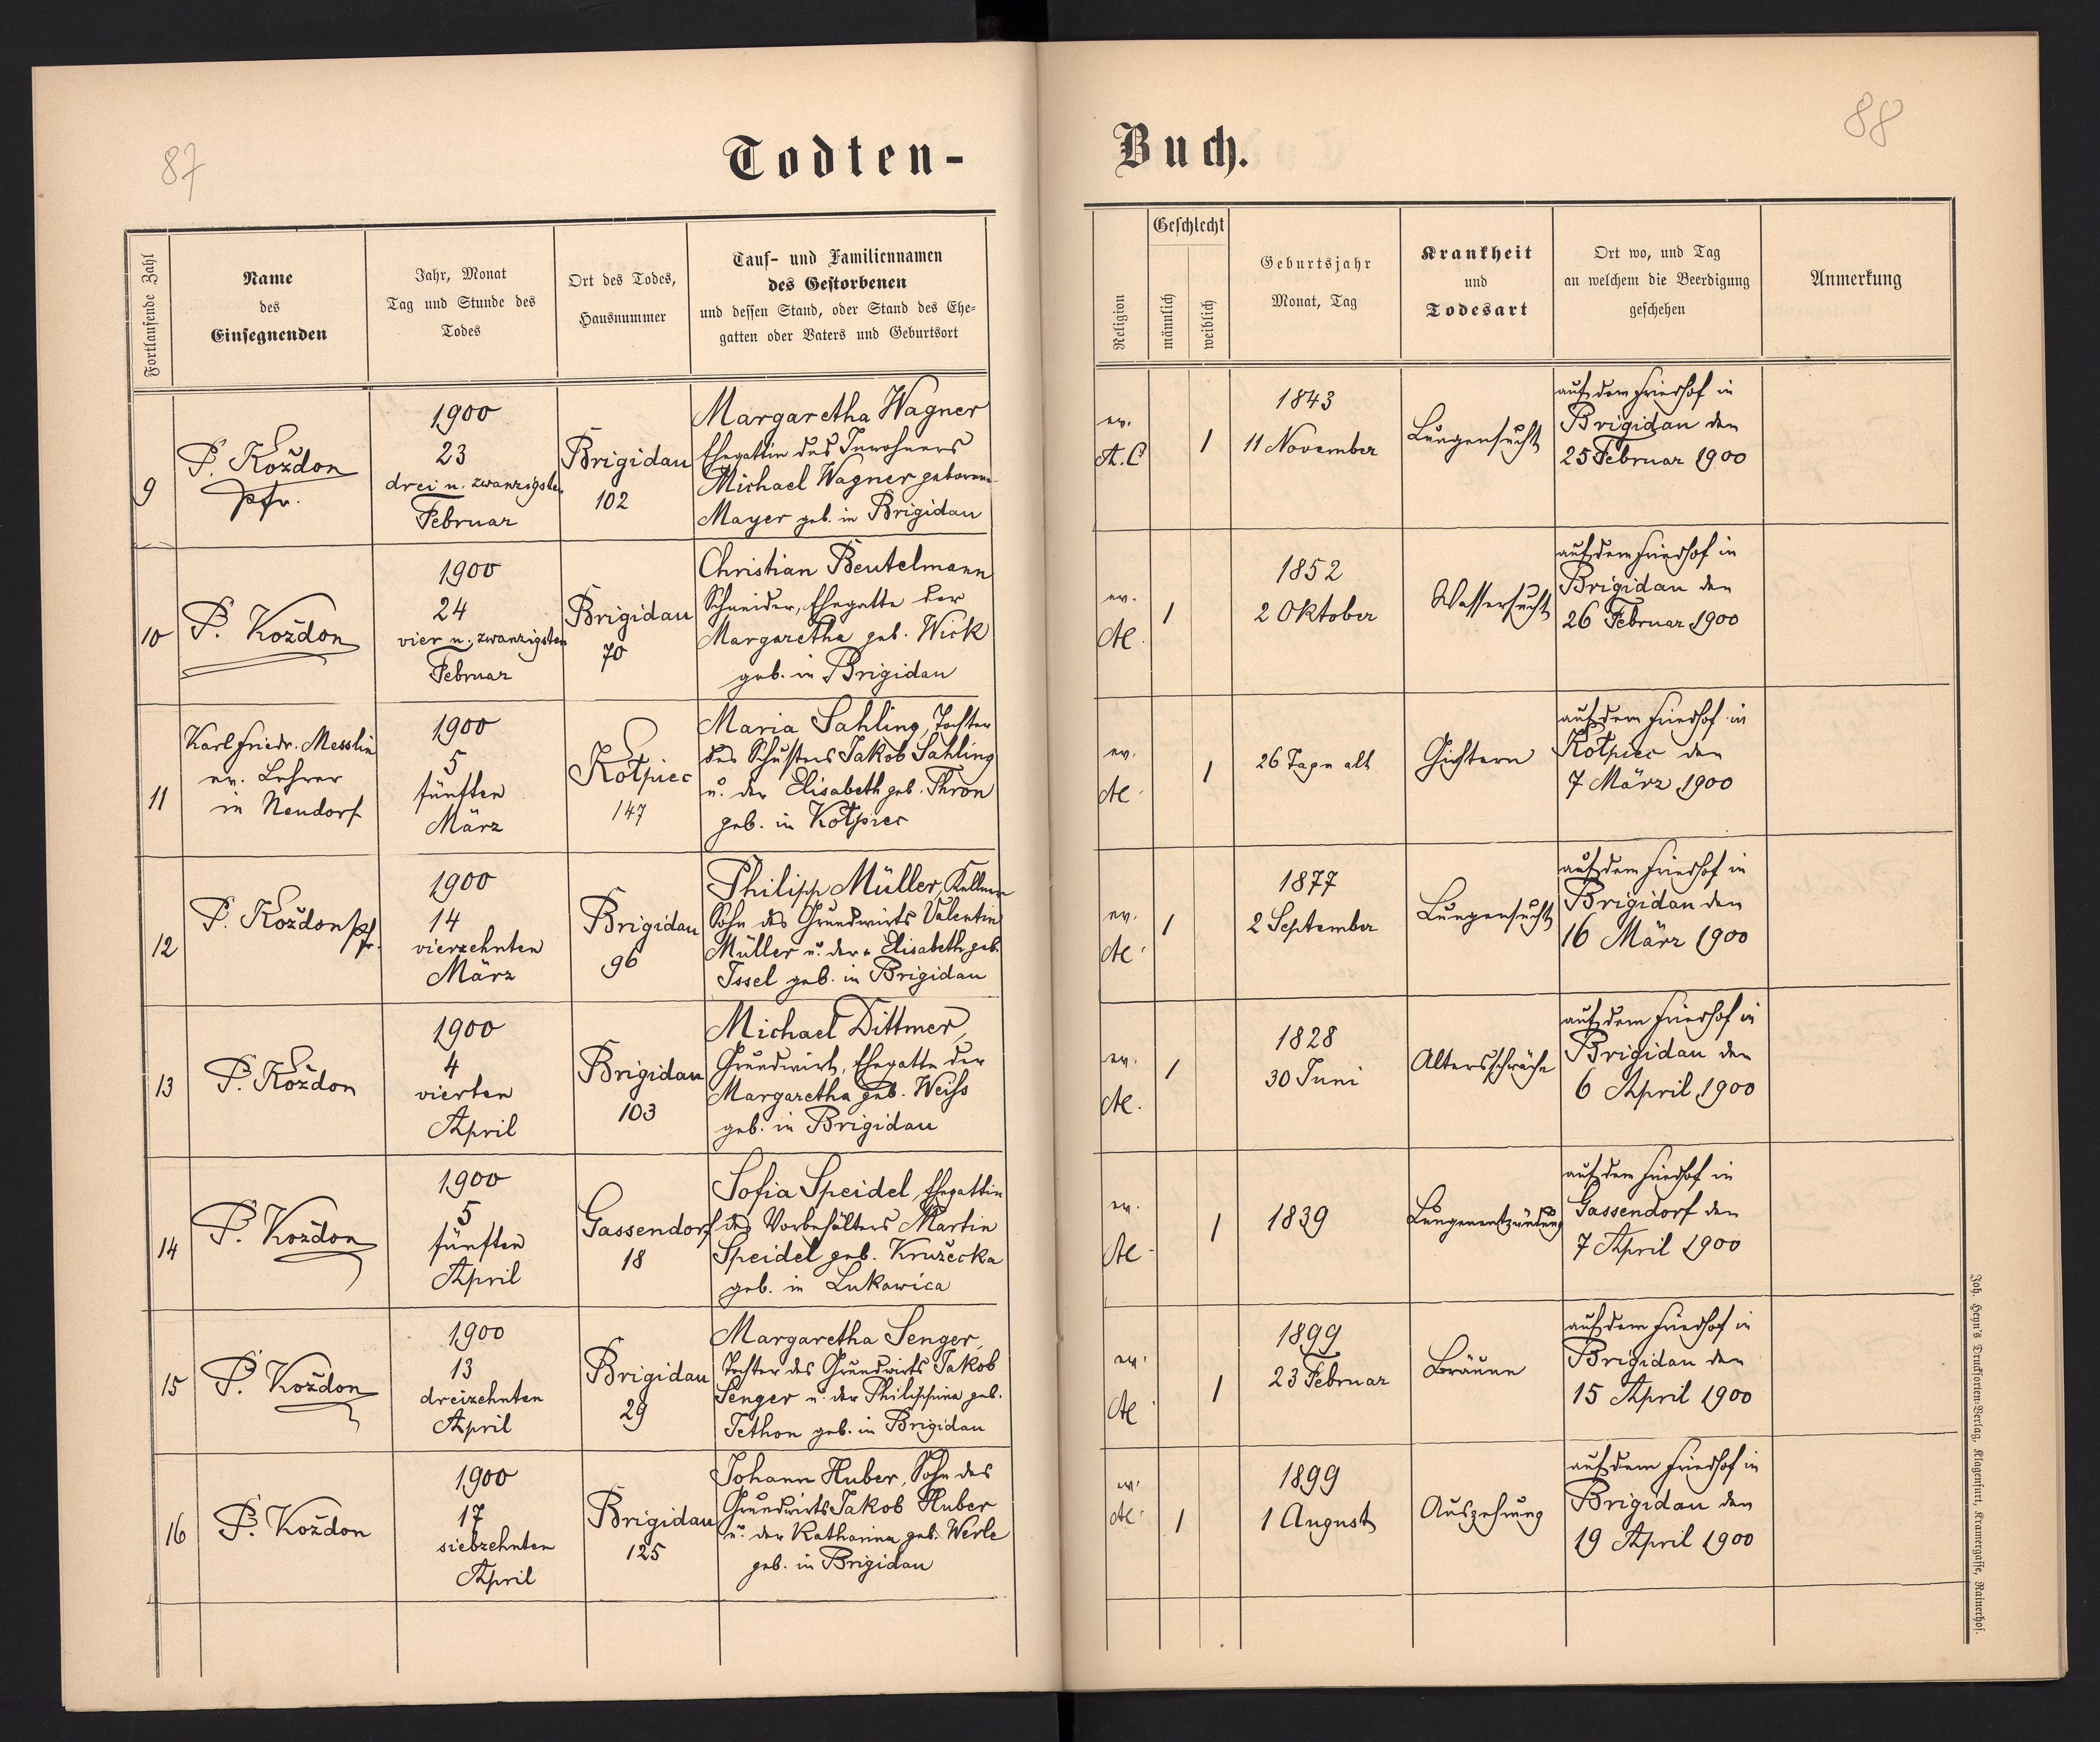 87
Todten-
Fortlaufende Zahl
Name
des
Einsegnenden
Jahr, Monat
Tag und Stunde des
Todes
Ort des Todes,
Hausnummer
Tauf- und Familiennamen
des Gestorbenen
und dessen Stand, oder Stand des Ehe-
gatten oder Vaters und Geburtsort
9
P. Kożdon
Pfr.
1900
23
drei u. zwanzigsten
Februar
Brigidau
102
Margaretha Wagner
Ehegattin des Inwohners
Michael Wagner geborene
Mayer geb. in Brigidau
10
P. Kożdon
1900
24
vier u. zwanzigsten
Februar
Brigidau
70
Christian Beutelmann
Schneider, Ehegatte der
Margaretha geb. Wick
geb. in Brigidau
11
Karl Friedr. Messlin
ev. Lehrer
in Neudorf
1900
5
fünften
März
Kołpiec
147
Maria Sahling, Tochter
des Schusters Jakob Sahling
u. der Elisabeth geb. Thron
geb. in Kołpiec
12
P. Kożdon Pfr.
1900
14
vierzehnten
März
Brigidau
96
Philipp Müller, Kellner
Sohn des Grundwirts Valentin
Müller u. der Elisabeth geb.
Issel geb. in Brigidau
13
P. Kożdon
1900
4
vierten
April
Brigidau
103
Michael Dittmer,
Grundwirt, Ehegatte der
Margaretha geb. Weiss
geb. in Brigidau
14
P. Kożdon
1900
5
fünften
April
Gassendorf
18
Sofia Speidel, Ehegattin
des Vorbehälters Martin
Speidel geb. Krużecka
geb. in Lukawica
15
P. Kożdon
1900
13
dreizehnten
April
Brigidau
29
Margaretha Senger,
Tochter des Grundwirts Jakob
Senger u. der Philippina geb.
Tethon geb. in Brigidau
16
P. Kożdon
1900
17
siebzehnten
April
Brigidau
125
Johann Huber, Sohn des
Grundwirts Jakob Huber
u. der Katharina geb. Werle
geb. in Brigidau
88
Buch.
Religion
Geschlecht
männlich
weiblich
Geburtsjahr
Monat, Tag
Krankheit
und
Todesart
Ort wo, und Tag
an welchem die Beerdigung
geschehen
Anmerkung
ev.
A. C
1
1843
11 November
Lungensucht
auf dem Friedhof in
Brigidau den
25 Februar 1900
ev.
AC.
1
1852
2 Oktober
Wassersucht
auf dem Friedhof in
Brigidau den
26 Februar 1900
ev.
AC.
1
26 Tage alt
Gichtern
auf dem Friedhof in
Kołpiec den
7 März 1900
ev.
AC.
1
1877
2 September
Lungensucht
auf dem Friedhof in
Brigidau den
16 März 1900
ev.
AC.
1
1828
30 Juni
Altersschwäche
auf dem Friedhof in
Brigidau den
6 April 1900
ev.
AC.
1
1839
Lungenentzündung
auf dem Friedhof in
Gassendorf den
7 April 1900
ev.
AC.
1
1899
23 Februar
Bräune
auf dem Friedhof in
Brigidau den
15 April 1900
ev.
AC.
1
1899
1 August
Auszehrung
auf dem Friedhof in
Brigidau den
19 April 1900
Joh. Heyn's Drucksorten-Verlag, Klagenfurt, Kramergasse, Rainerhof.